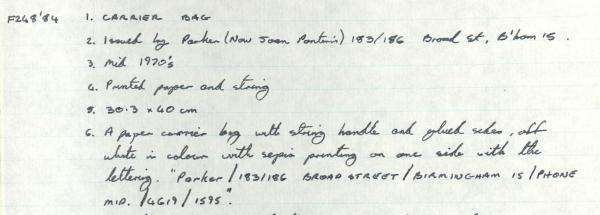 F248'84 1. CARRIER BAG
2. Issued by Parker (Now Joan Pontin's) 183/186 Broad St, B'ham 15.
3. Mid 1970's
4. Printed paper and string
5. 30.3 x 40 cm
6. A paper carrier bag with string handle and glued sides, off
white in colour with sepia printing on one side with the
lettering. "Parker/183/186 BROAD STREET/BIRMINGHAM 15/PHONE
MID. /4619/1595".